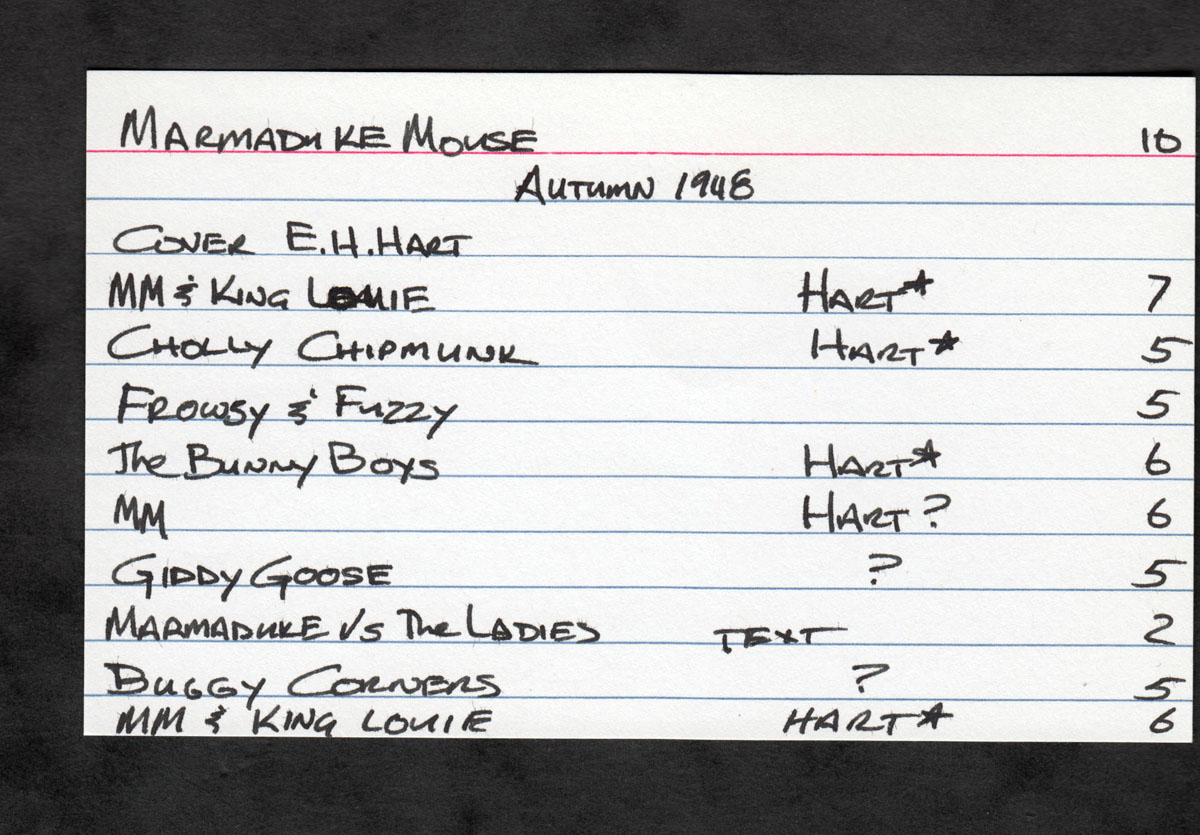 MARMADUKE MOUSE 10
AUTUMN 1948
COVER E.H.HART
MM & KING LOUIE HART* 7
CHOLLY CHIPMUNK HART* 5
FROWSY & FUZZY 5
The BUNNY BOYS HART* 6
MM HART? 6
GIDDY GOOSE ? 5
MARMADUKE VS The LADIES TEXT 2
BUGGY CORNERS ? 5
MM & KING LOUIE HART* 6